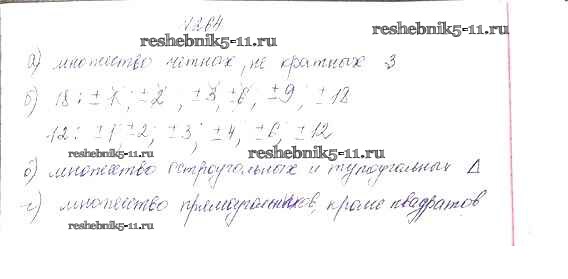 № 264
reshebnik5-11.ru reshebnik5-11.ru
а) множество четных, не кратных 3
б) 18: ±1, ±2, ±3, ±6, ±9, ±18
12: ±1, ±2, ±3, ±4, ±6, ±12
reshebnik5-11.ru reshebnik5-11.ru
в) множество остроугольных и тупоугольных Δ
г) множество прямоугольников, кроме квадратов
reshebnik5-11.ru